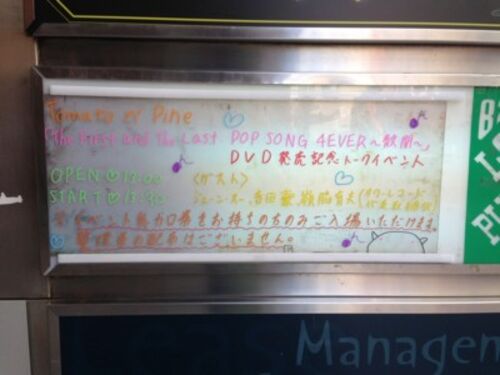 Tomato n' Pine
「The First and The Last POP SONG 4EVER～散開～」
DVD発売記念トークイベント
OPEN♡13:00 〈ゲスト〉
START♡13:30 ジェーン・スー、吉田豪、嶺脇育夫(タワーレコード
※イベント参加券をお持ちの方のみご入場いただけます。
の配布はございません。
Managem